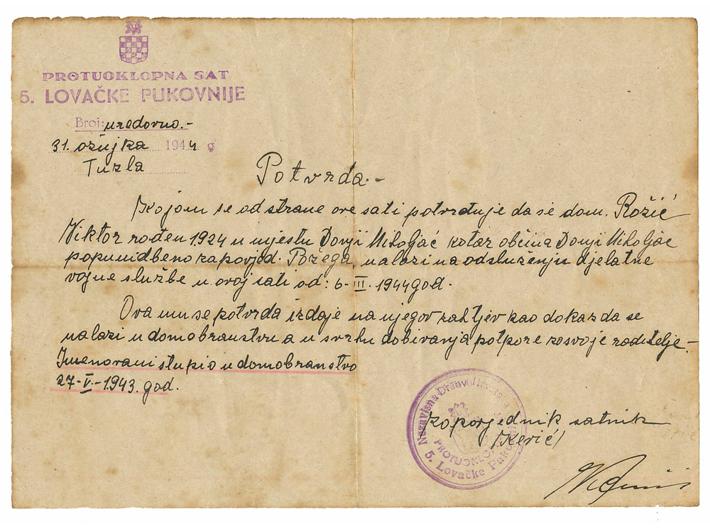 PROTUOKLOPNA SAT
5. LOVAČKE PUKOVNIJE
Broj: uredovno.-
31. ožujka 1944 g
Tuzla
Potvrda.-
Kojom se od strane ove sati potvrđuje da se dom. Rožić
Viktor rođen 1924 u mjestu Donji Miholjac kotar obćina Donji Miholjac
popunidbeno zapovjed. Požega, nalazi na odsluženju djelatne
vojne službe u ovoj sati od: 6-III-1944 god.
Ova mu se potvrda izdaje na njegov zahtjev kao dokaz da se
nalazi u domobranstvu a u svrhu dobivanja potpore za svoje roditelje.-
Imenovani stupio u domobranstvo
27-V-1943. god.
zapovjednik satnik
/Kerić/
Nezavisna Država Hrvatska
PROTUOKLOPNA
5. Lovačke Pukovnije